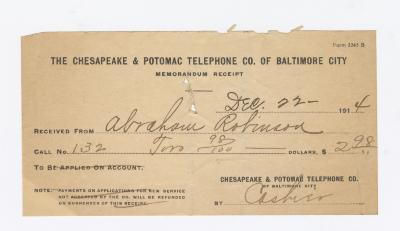 Form 3345 B
THE CHESAPEAKE & POTOMAC TELEPHONE CO. OF BALTIMORE CITY
MEMORANDUM RECEIPT
Dec. 22- 1914
RECEIVED FROM Abraham Robinson
CALL NO. 132 Two 98/100 DOLLARS, $ 2.98
TO BE APPLIED ON ACCOUNT.
NOTE: PAYMENTS ON APPLICATIONS FOR NEW SERVICE
NOT ACCEPTED BY THE CO. WILL BE REFUNDED
ON SURRENDER OF THIS RECEIPT.
CHESAPEAKE & POTOMAC TELEPHONE CO.
OF BALTIMORE CITY
BY Cashier